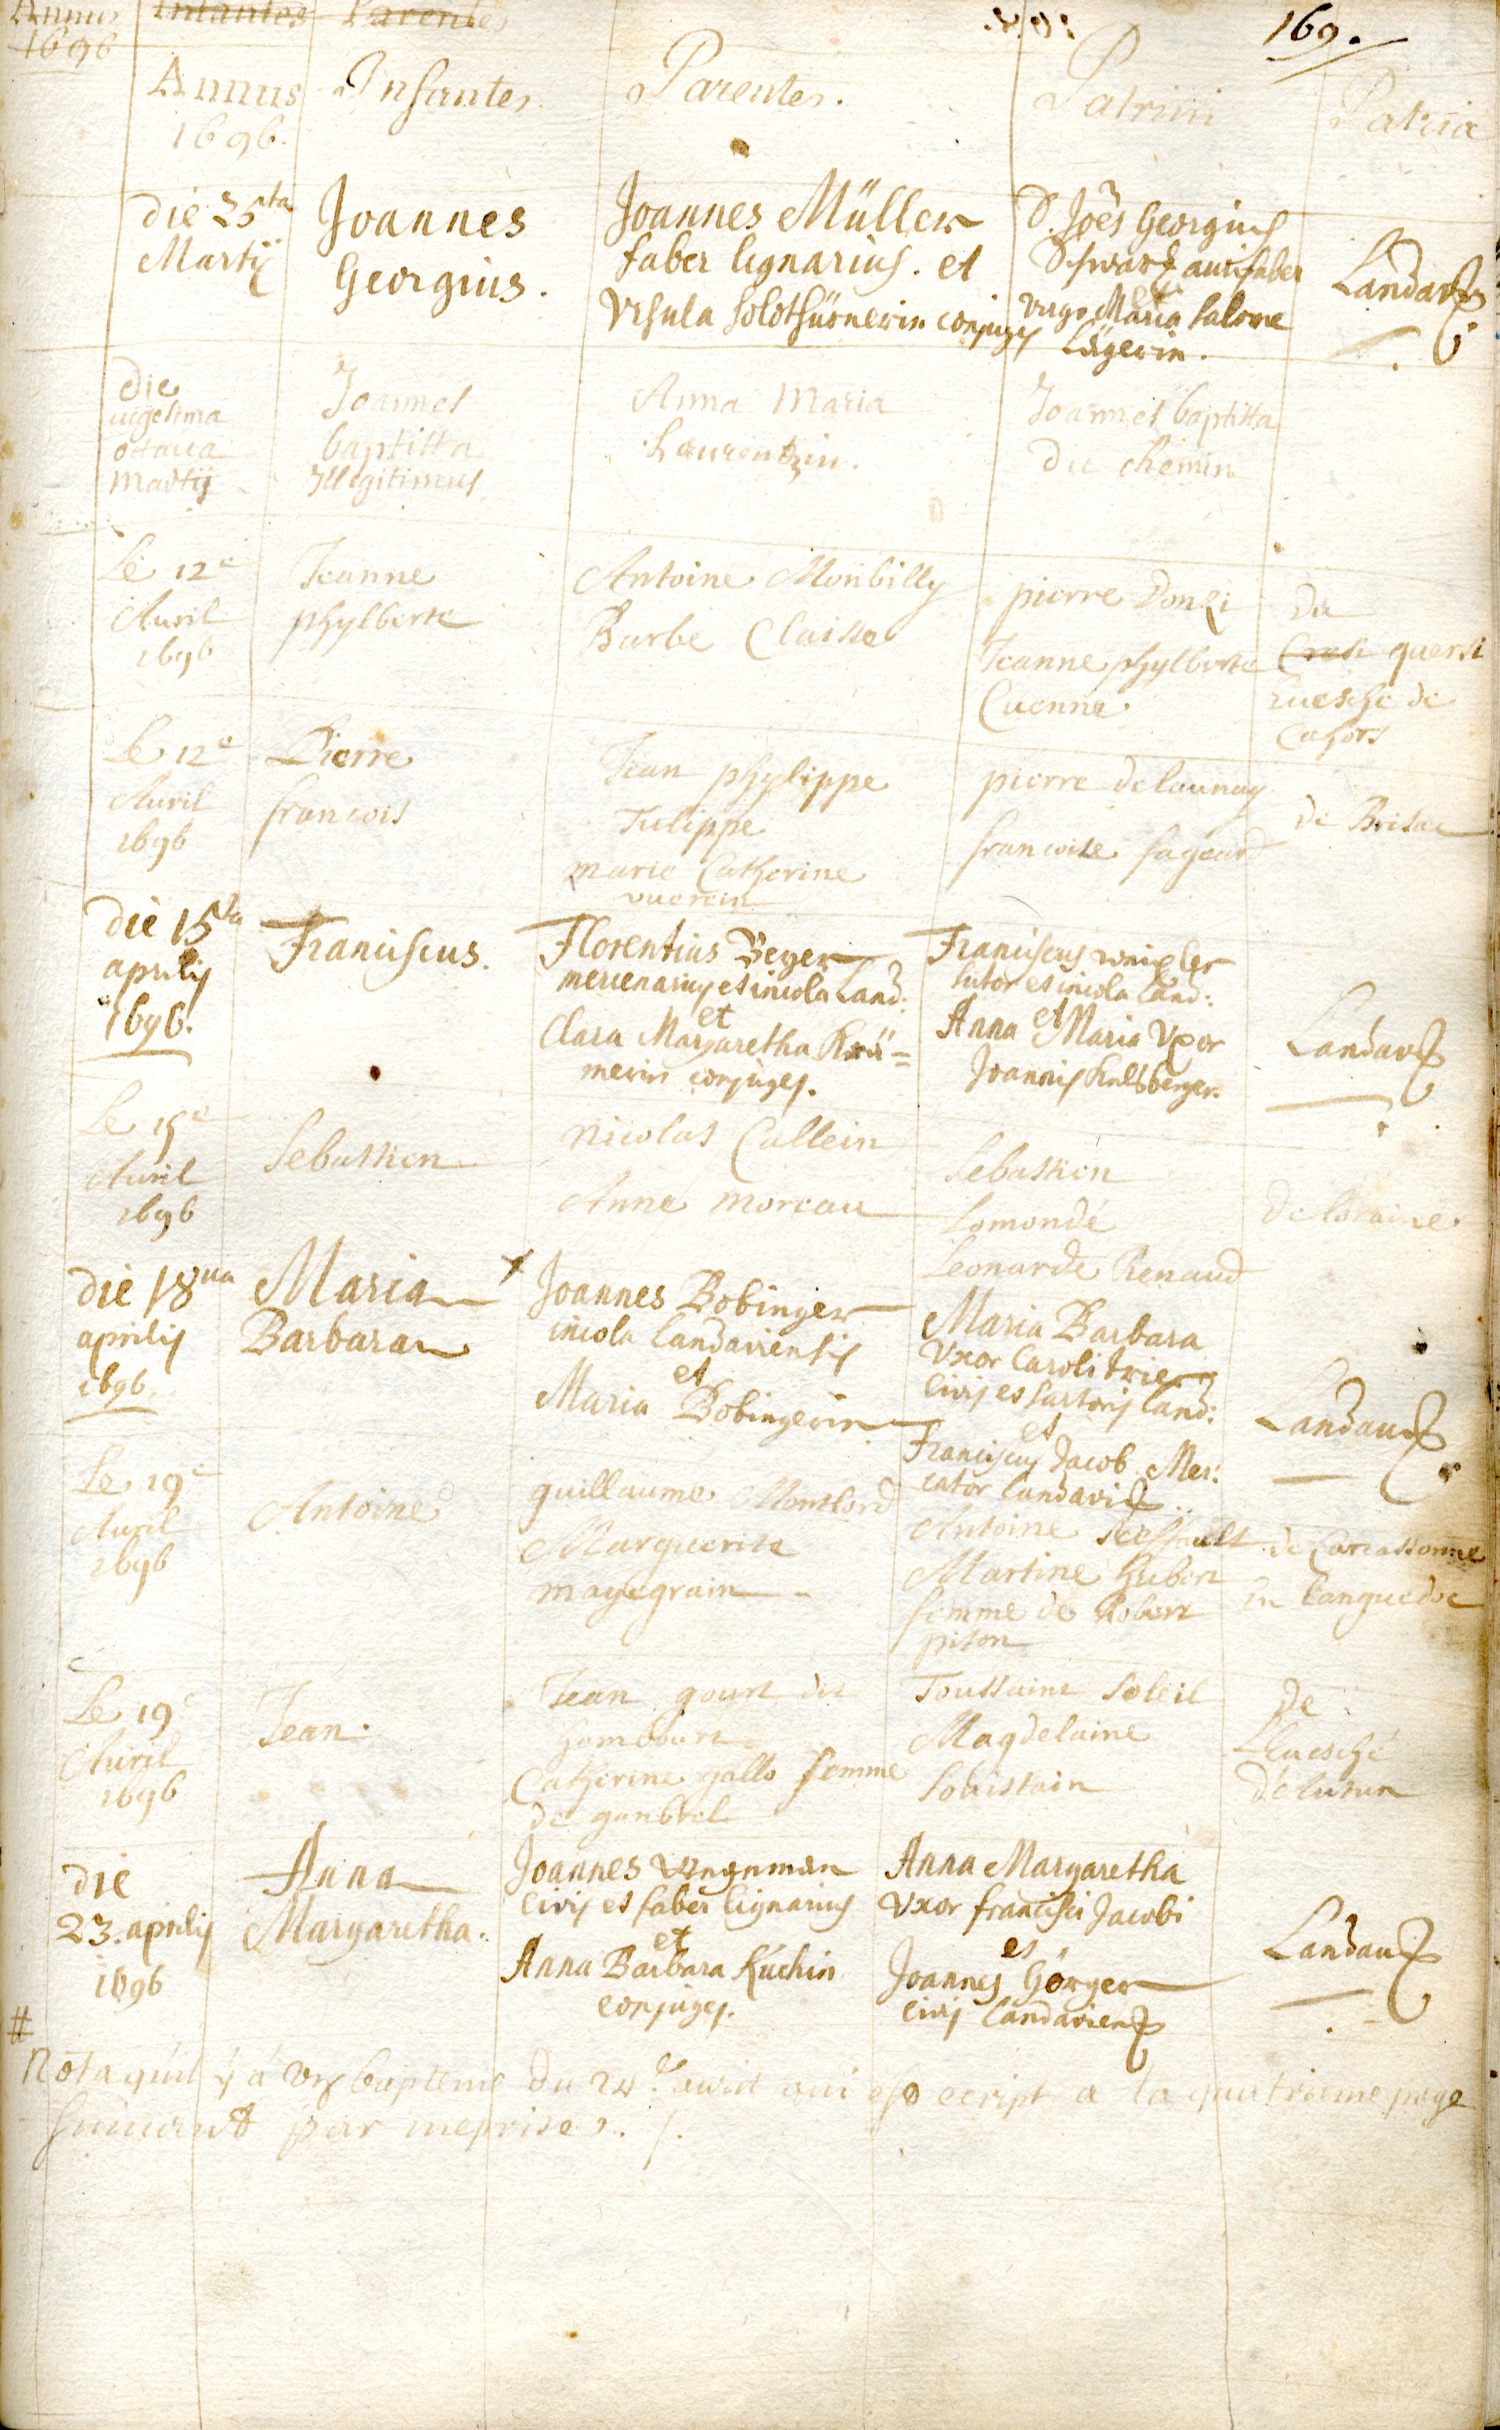 Annus Infantes Parentes
1696
169.
Annus Infantes Parentes. Patrini Patria
1696.
die 25ta
Martij
Joannes
Georgius.
Joannes Müller
faber lignarius. et
Ursula conjuges
D. Joes Georgius
aurifaber
et
virgo Maria Salome
Landav
die
vigesima
ottava
martij
Joannes
baptista
Illegitimus
Anna Maria
Laurentzin.
Joannes baptista
du chemin
Le 12e
Auril
1696
Jeanne
phylberte
Antoine Monbilly
Barbe Claisse
pierre Donzi
Jeanne phylberte
Cuenne
Du
quersi
euesche de
Cahors
Le 12e
Auril
1696
Pierre
francois
Jean phylippe
Tulippe
marie Catherine
pierre delaunay
francoise fageard
de Brisac
die 15ta
aprilis
1696.
Franciscus.
Florentius Beyer
mercenarius et incola Land:
et
Clara Margaretha Krä=
merin conjuges.
Franciscus
sutor et incola Land:
et
Anna Maria Uxor
Joannis
Landav
Le 15e
Auril
1696
Sebastien
Nicolas Callein
Anne moreau
Sebastien
Lomondé
Leonarde Renaud
de loraine
die 18ua
aprilis
1696.
Maria
Barbara
Joannes Bobinger
incola Landaviensis
et
Maria Bobingerin
Maria Barbara
Uxor Caroli
civis et sartoris Land:
et
Franciscus Jacob Mer:
cator Landavi
Landau
Le 19e
Auril
1696
Antoine
guillaume Montlord
Marguerite
mayegrain
Antoine
Martine hubert
femme de Robert
piton
de Carcassonne
en languedoc
Le 19e
Auril
1696
Jean.
Jean gourt dit
Catherine gallo femme
de ganbrel
Toussaint Soleil
Magdelaine
Louistain
De
Leuesché
die
23. aprilis
1696
Anna
Margaretha.
Joannes
civis et faber lignarius
et
Anna Barbara Kuchin
conjuges.
Anna Margaretha
Uxor francisci Jacobi
et
Joannes Görger
civis Landavien
Landau
#
Nota qu'il y a un baptême du 24e avril qui est ecript a la quatrieme page
suiuant par meprise.